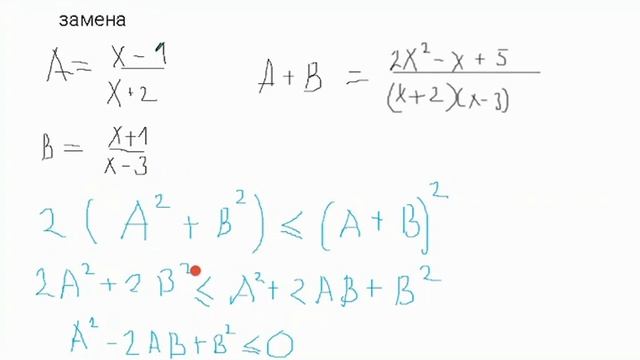 замена
A = (x - 1)/(x + 2)
A + B = (2x² - x + 5)/((x+2)(x-3))
B = (x+1)/(x-3)
2(A² + B²) ≤ (A + B)²
2A² + 2B² ≤ A² + 2AB + B²
A² - 2AB + B² ≤ 0